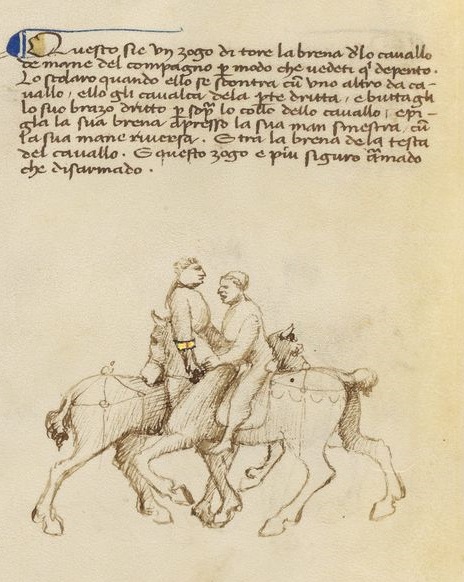 Questo sie un zogo di tore la brena dʼlo cavallo
de mane del compagno ꝑ modo che vedeti q̄ depento.
Lo scolaro quando ello se scontra cū uno altro da ca-
vallo, ello gli cavalca dela ꝑte dritta, e buttagli
lo suo brazo dritto ꝑ sopꝰ lo collo dello cavallo, e pi-
gla la sua brena apresso la sua man sinestra, cū
la sua mane riversa. E tra la brena dela testa
del cavallo. E questo zogo e più siguro armado
che disarmado.